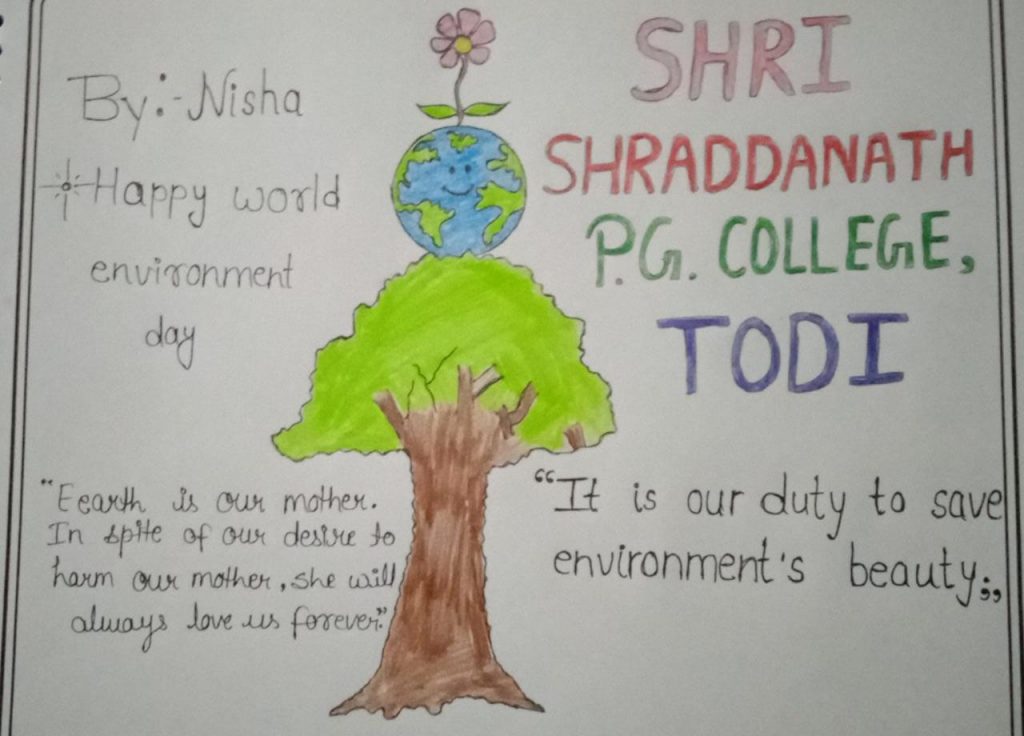 By:- Nisha
Happy world
environment
day
SHRI
SHRADDANATH
P.G. COLLEGE,
TODI
"Eearth is our mother.
In spite of our desire to
harm our mother, she will
always love us forever."
"It is our duty to save
environment's beauty;"